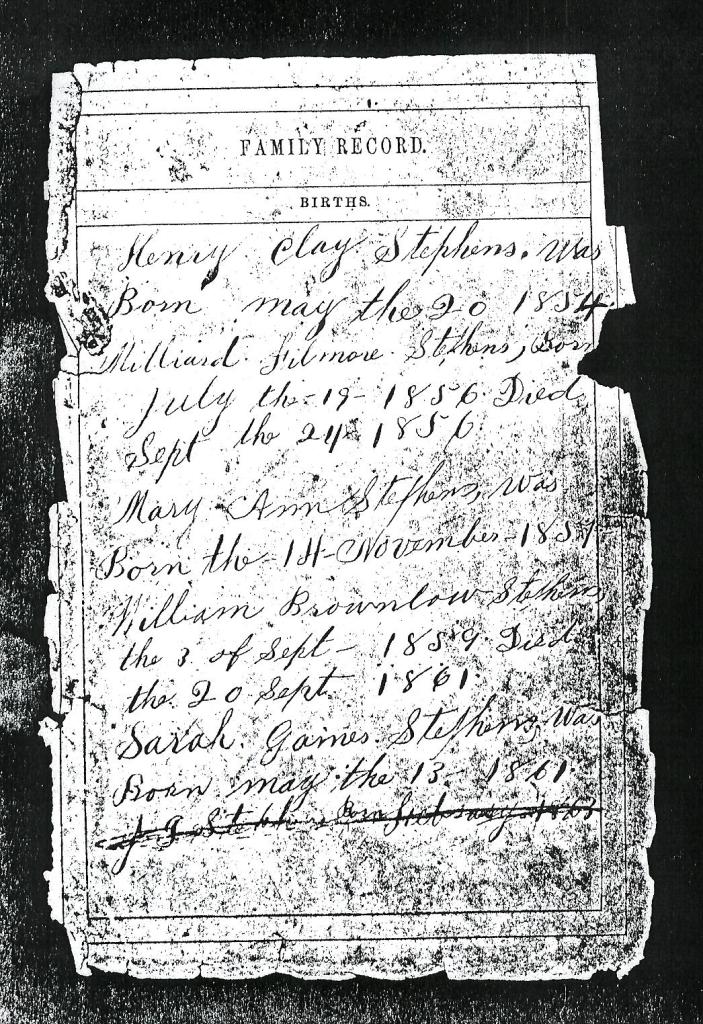 FAMILY RECORD.
BIRTHS.
Henry Clay Stephens. was
Born may the 20 1854
Milliard. Filmore. Stephens, Born
July the 19 - 1856 Died
Sept the 24 1856
Mary Ann Stephens, was
Born the 14 November 1857
William Brownlow Stephens
the 3 of Sept - 1859 Died
the 20 Sept 1861
Sarah. Gaines. Stephens, was
Born may the 13 - 1861
J G Stephens Born